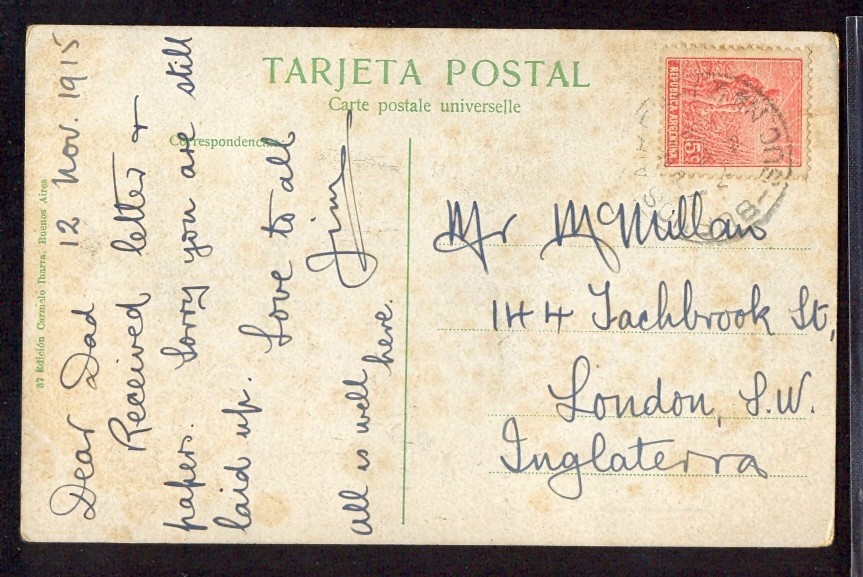 TARJETA POSTAL
Carte postale universelle
Correspondencia
37 Edición Carmelo Ibarra, Buenos Aires
Dear Dad 12 Nov. 1915
Received letter &
papers. Sorry you are still
laid up. Love to all
Jim
all is well
here.
REPUBLICA ARGENTINA
5c
Mr McMillan
144 Tachbrook St,
London, S.W.
Inglaterra